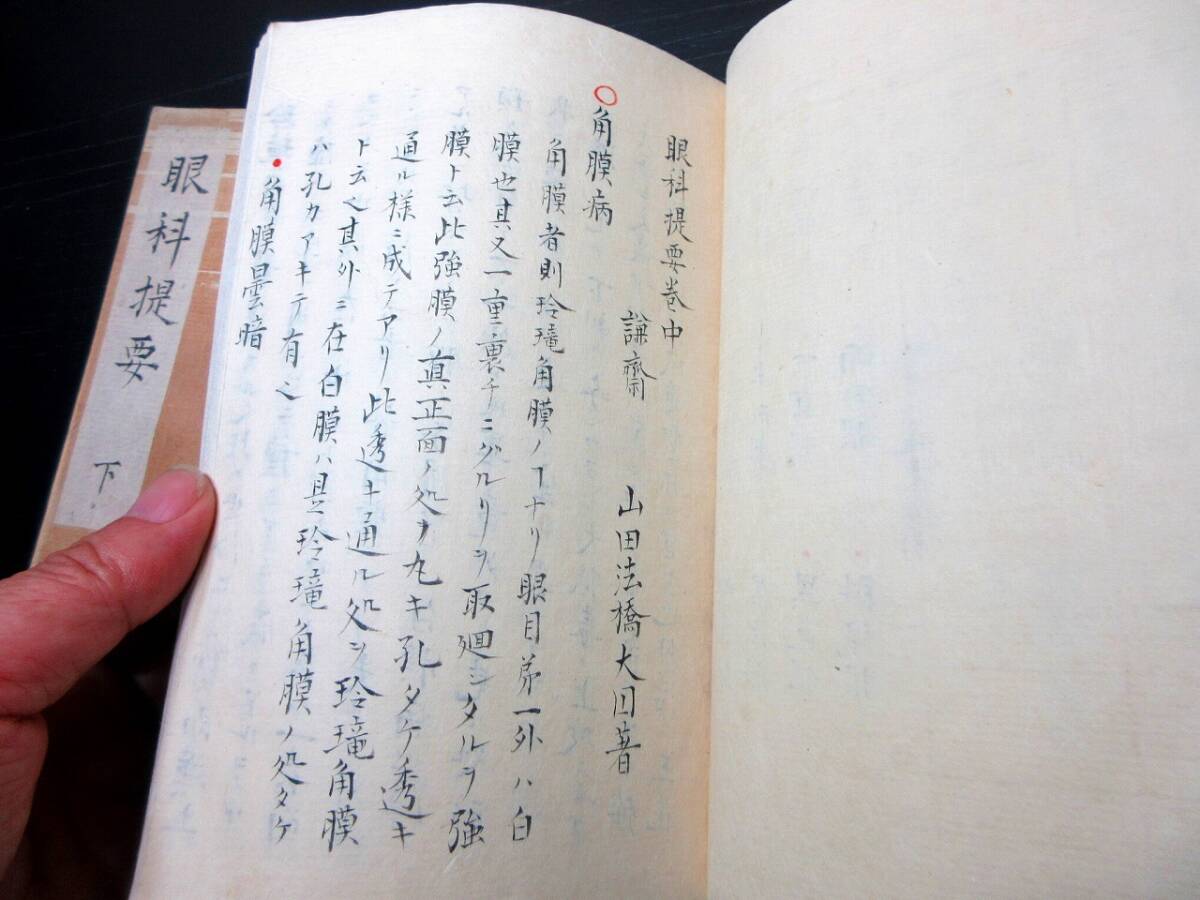 眼科提要卷中
謙齋 山田法橋大円著
角膜病
角膜者則玲瓏角膜ノヿナリ眼目弟一外ハ白
膜也其又一重裏チニグルリヲ取廻シタルヲ強
膜ト云此強膜ノ真正面ノ処ヲ丸キ孔タケ透キ
通ル様ニ成テアリ此透キ通ル処ヲ玲瓏角膜
ト云也其外ニ在白膜ハ具玲瓏角膜ノ処タケ
ハ孔カアキテ有也
角膜曇暗
眼科提要
下